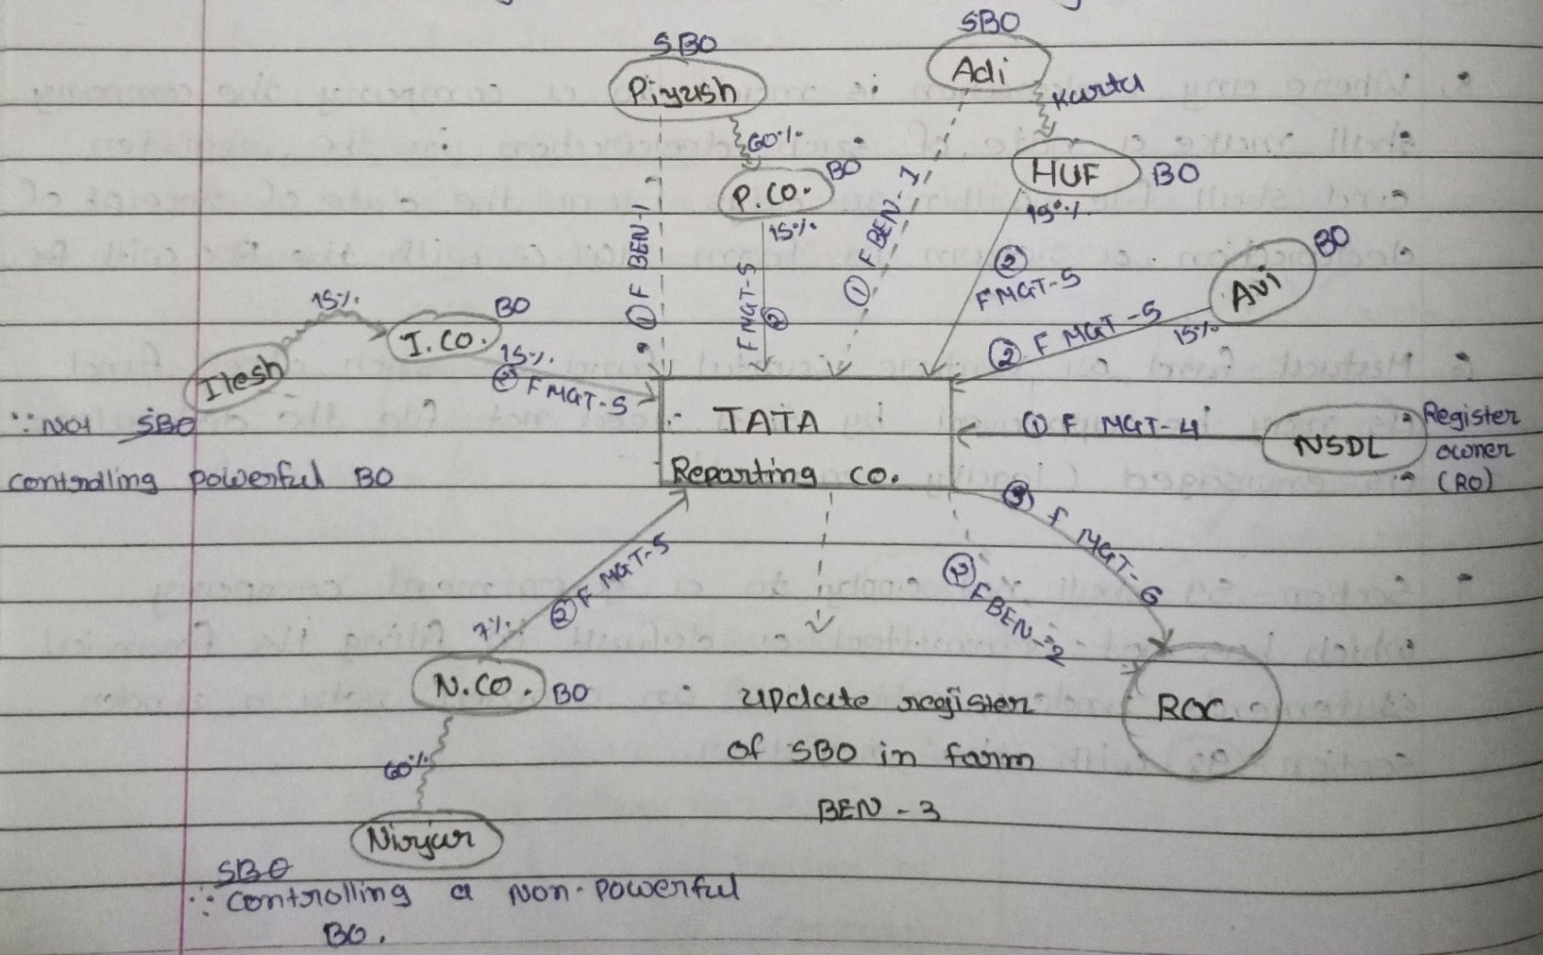 SBO
Piyush
60%
P.CO.
BO
15%
① F BEN-1
F MGT-5 ②
SBO
Adi
Karta
HUF
BO
15%
① F BEN-1
②
F MGT-5
BO
Avi
15%
② F MGT-5
15%
BO
I.CO.
Itesh
15%
② F MGT-5
∵ Not SBO
controlling powerful BO
TATA
Reporting CO.
① F MGT-4
NSDL
Register
owner
(RO)
③ F MGT-6
② F BEN-2
ROC
② F MGT-5
7%
N.CO.
BO
60%
Nirjur
SBO
∵ controlling a Non-powerful
BO.
update register
of SBO in form
BEN-3